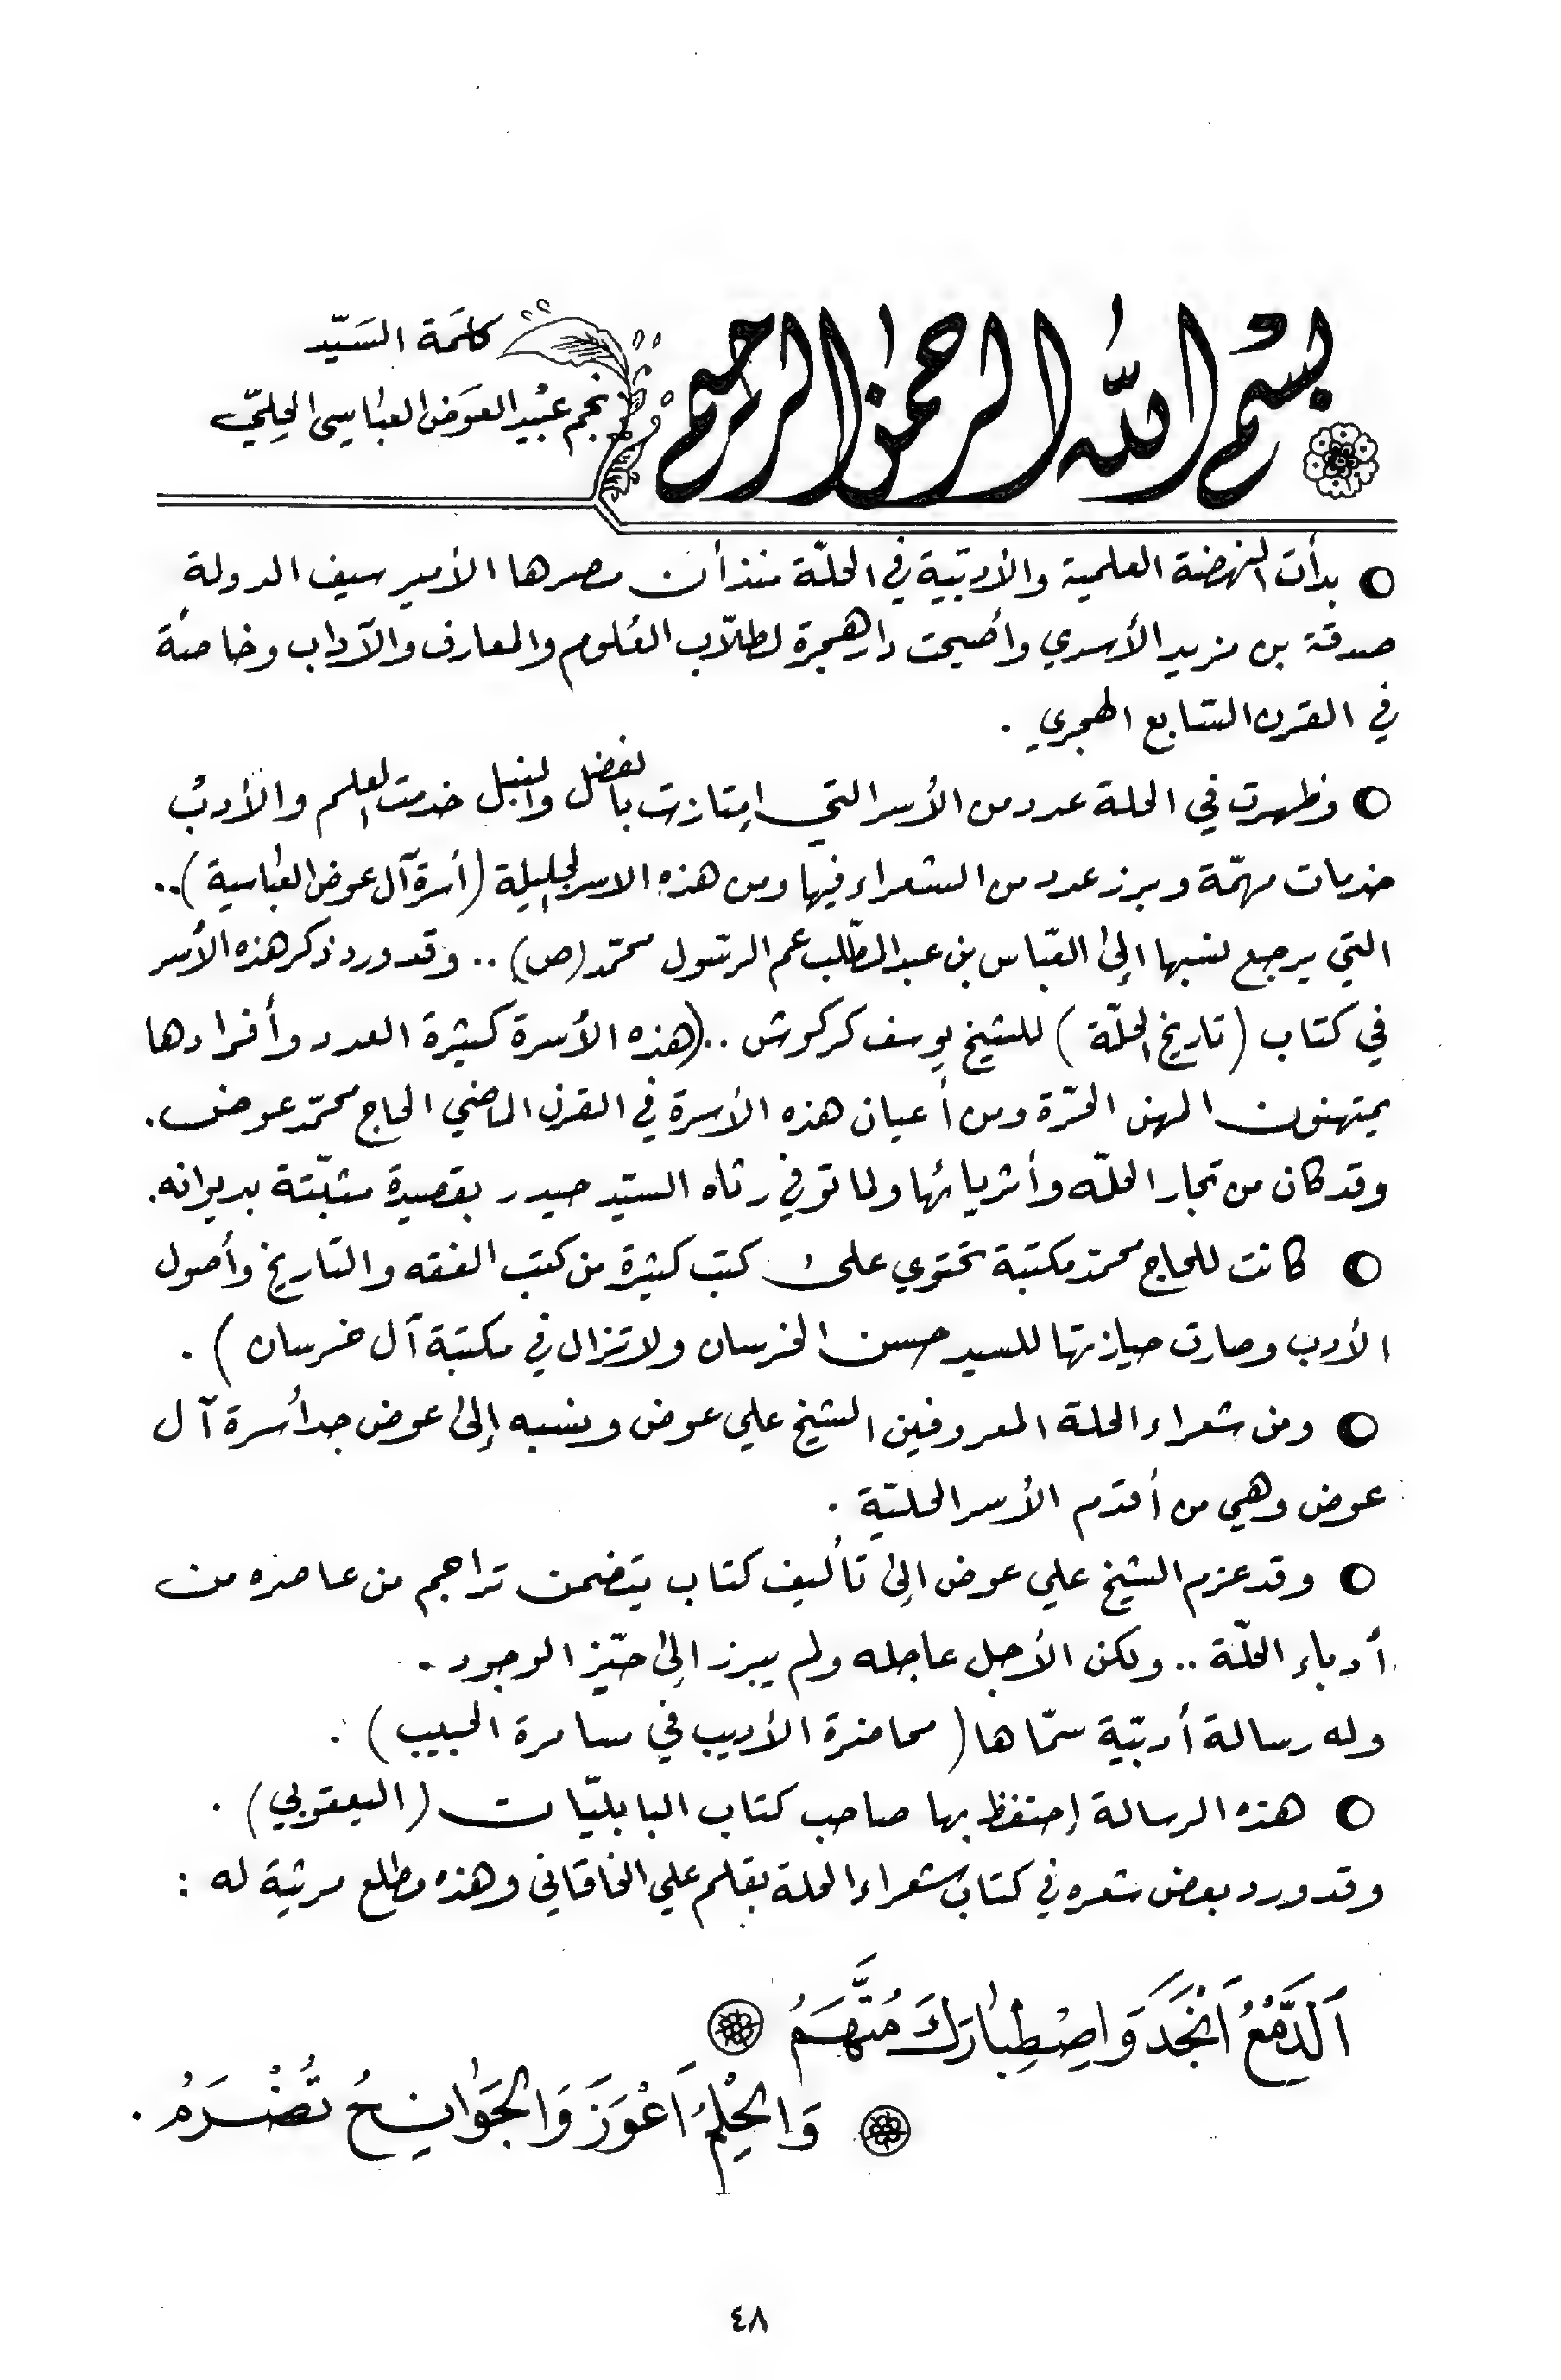 بسم الله الرحمن الرحيم
كلمَة السَيّد
نجم عبَيد العوَض العبّاسي الحِليّ
○ بدأت النهضة العلمية والأدبيّة في الحلّة منذ أن مصرها الأمير سيف الدولة
صدقة بن مزيد الأسدي وأصبحت دار هجرة لطلّاب العُلوم والمعارف والآداب وخاصةً
في القرن السّابع الهجري .
○ وظهرت في الحلة عدد من الأسر التي امِتازت بالفضل والنبل خدمت العلم والأدبْ
خدمات مهمّة وبرز عدد من الشعراء فيها ومن هذهِ الاسر الجليلة (أسرة آل عوض العبّاسية) ..
التي يرجع نسبها إلىٰ العبّاس بن عبد المطّلب عم الرسّول محمّد (ص) .. وقد ورد ذكر هذه الأسر
في كتاب (تاريخ الحلّة) للشيخ يوسف كركوش .. (هذه الأسرة كثيرة العدد وأفرادها
يمتهنون المهن الحّرة ومن أعيان هذه الأسرة في القرن الماضي الحاج محمّد عوض .
وقد كان من تجار الحلّه وأثريائها ولما توفي رثاه السيّد حيدر بقصيدة مثبّتة بديوانه .
○ كانت للحاج محمّد مكتبة تحتوي علىٰ كتب كثيرة من كتب الفقه والتاريخ وأصول
الأدب وصارت حيازتها للسيد حسن الخرسان ولا تزال في مكتبة آل خرسان ) .
○ ومن شعراء الحلة المعروفين الشيخ علي عوض ونسبه إلىٰ عوض جد أسرة آل
عوض وهي من أقدم الأسر الحليّة .
○ وقد عزم الشيخ علي عوض الِىٰ تأليف كتاب يتضمن تراجم من عاصره من
أدباء الحلّة .. ولكن الأجل عاجله ولم يبرز الِىٰ حيّز الوجود .
وله رسالة أدبيّة سمّاها ( محاضرة الأديب في مسامرة الحبيب ) .
○ هذه الرسالة إحتفظ بها صاحب كتاب البابليّات (اليعقوبي) .
وقد ورد بعض شعره في كتاب شعراء الحلة بقلم علي الخاقاني وهذه مطلع مرثية له :
اَلدَّمْعُ اَنْجَدَ وَاصِْطِبٰارَكَ مُتَّهَمُ
وَالحُلِمُ اَعْوَزَ وَالجَوٰانِحُ تُضْرَمُ .
٤٨